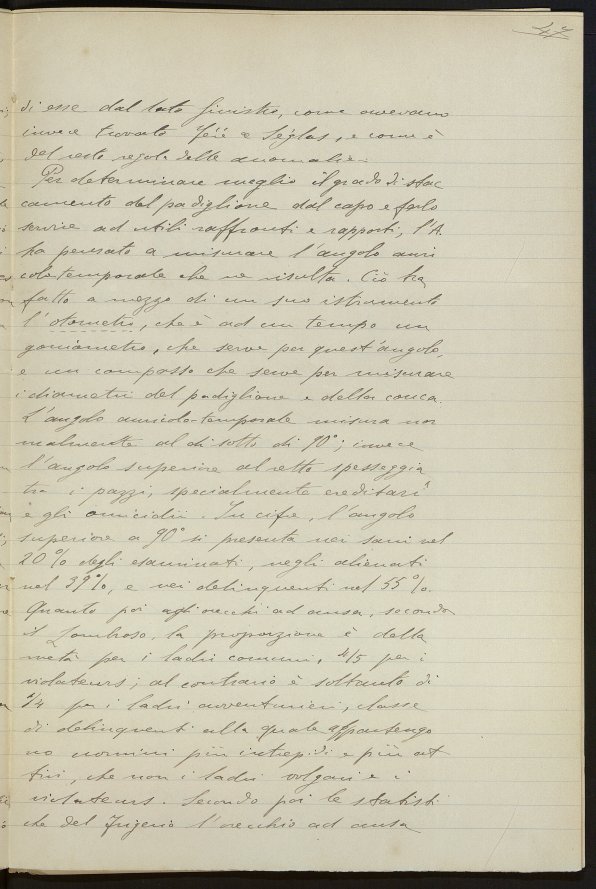 47
di esse dal lato sinistro, come avevano
invece trovato Féré e Séglas, e come è
del resto regola delle anomalie.
Per determinare meglio il grado di stac
camento del padiglione dal capo e farlo
servire ad utili raffronti e rapporti, l'A.
ha pensato a misurare l'angolo auri
colo temporale che ne risulta. Ciò ha
fatto a mezzo di un suo istrumento
l'otometro, che è ad un tempo un
goniometro, che serve per quest'angolo,
e un compasso che serve per misurare
i diametri del padiglione e della conca.
L'angolo auricolo-temporale misura nor
malmente al di sotto di 90°; invece
l'angolo superiore al retto spesseggia
tra i pazzi, specialmente ereditarî
e gli omicidii. In cifre, l'angolo
superiore a 90° si presenta nei sani nel
20% degli esaminati, negli alienati
nel 39%, e nei delinquenti nel 55%.
Quanto poi agli orecchi ad ansa, secondo
il Lombroso, la proporzione è della
metà per i ladri comuni, 4/5 per i
violateurs; al contrario è soltanto di
1/4 per i ladri avventurieri, classe
di delinquenti alla quale appartengo
no uomini più intrepidi e più at
tivi, che non i ladri volgari e i
violateurs. Secondo poi le statisti
che del Frigerio l'orecchio ad ansa